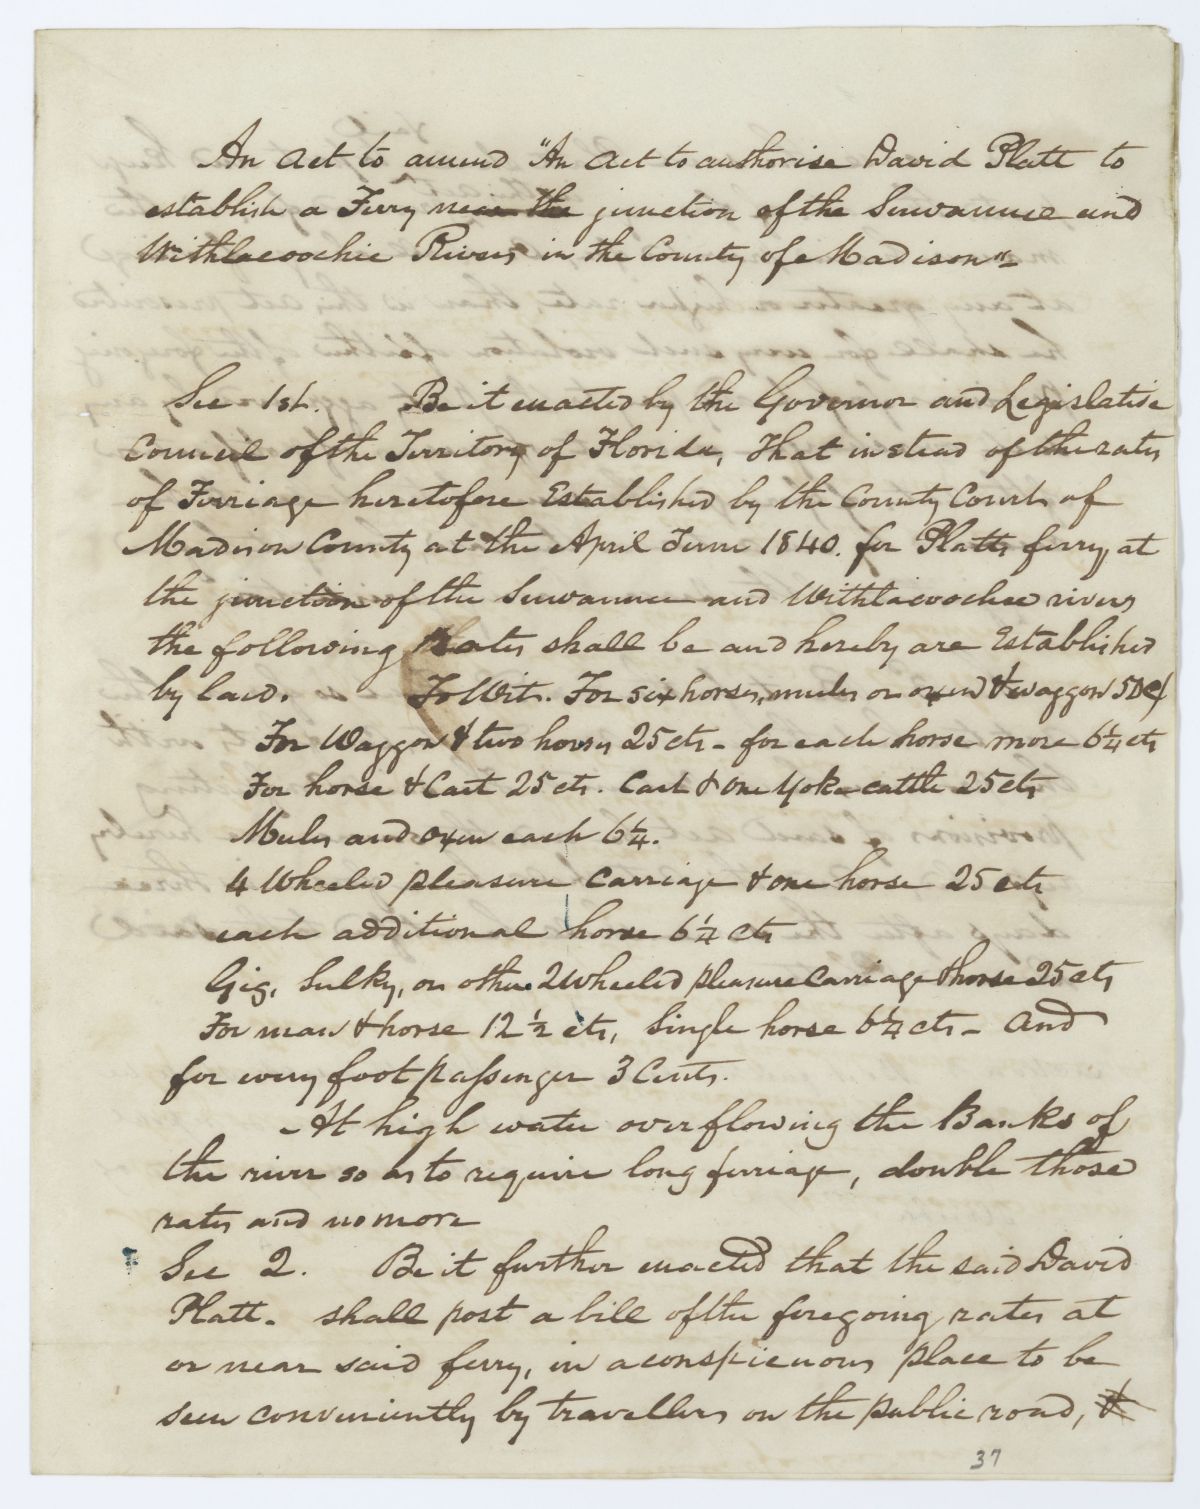 An Act to amend "An Act to authorise David Platt to
establish a Ferry near the junction of the Suwannee and
Withlacoochie Rivers in the County of Madison"
Sec 1st. Be it enacted by the Governor and Legislative
Council of the Territory of Florida, That instead of the rates
of Ferriage heretofore Established by the County Court of
Madison County at the April Term 1840. for Platts ferry at
the junction of the Suwannee and Withlacoochee rivers
the following Rates shall be and hereby are Established
by law. To Wit. For six horses, mules or oxen & waggon 50c/
For Waggon & two horses 25 cts - for each horse more 6¼ cts
For horse & Cart 25 cts. Cart & one Yoke cattle 25 cts
Mules and oxen each 6¼.
4 Wheeled pleasure Carriage & one horse 25 cts
each additional horse 6¼ cts
Gig, Sulky, or other 2 Wheeled pleasure Carriage & horse 25 cts
For man & horse 12½ cts, Single horse 6¼ cts - And
for every foot passenger 3 Cents.
At high water overflowing the Banks of
the river so as to require long ferriage, double those
rates and no more
Sec 2. Be it further enacted that the said David
Platt. shall post a bill of the foregoing rates at
or near said ferry, in a conspicuous place to be
seen conveniently by travellers on the public road, &
37